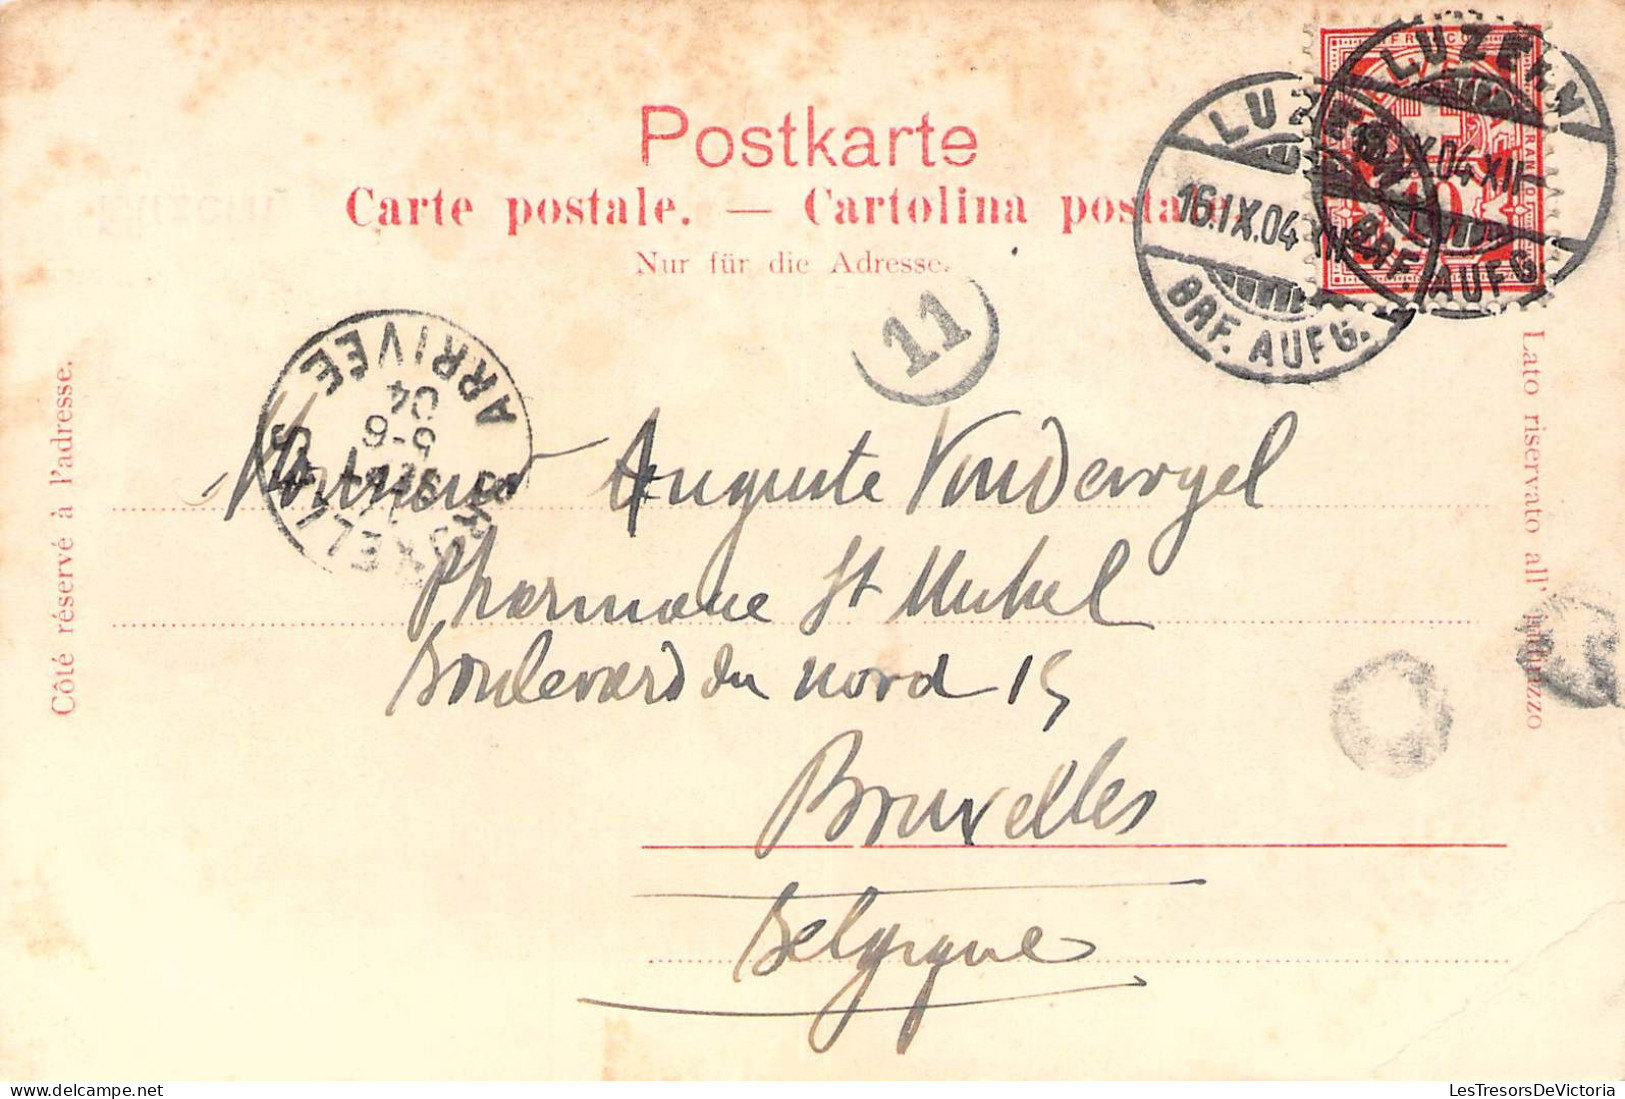 Postkarte
Carte postale. — Cartolina postale.
Nur für die Adresse.
Côté réservé à l'adresse.
Lato riservato all' indirizzo
LUZERN
16.IX.04
BRF. AUFG.
LUZERN
IX.04 XII
BRF. AUFG.
FRANCO
10
11
ARRIVÉE
04
5-6
SEPT
BRUXELLES
Monsieur Auguste
Pharmacie St Michel
Boulevard du Nord 15
Bruxelles
Belgique
LesTresorsDeVictoria